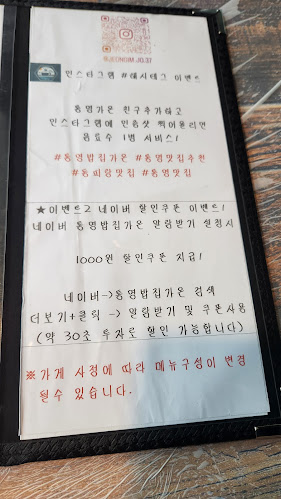 인스타그램 #해시태그 이벤트
통영가온 친구추가하고
인스타그램에 인증샷 찍어올리면
음료수 1병 서비스!
#통영밥집가온 #통영맛집추천
#동피랑맛집 #통영맛집
★이벤트2 네이버 할인쿠폰 이벤트!
네이버 통영밥집가온 알람받기 설정시
1000원 할인쿠폰 지급!
네이버→통영밥집가온 검색
더보기+클릭 → 알람받기 및 쿠폰사용
(약 30초 투자로 할인 가능합니다)
※가게 사정에 따라 메뉴구성이 변경
될수 있습니다.